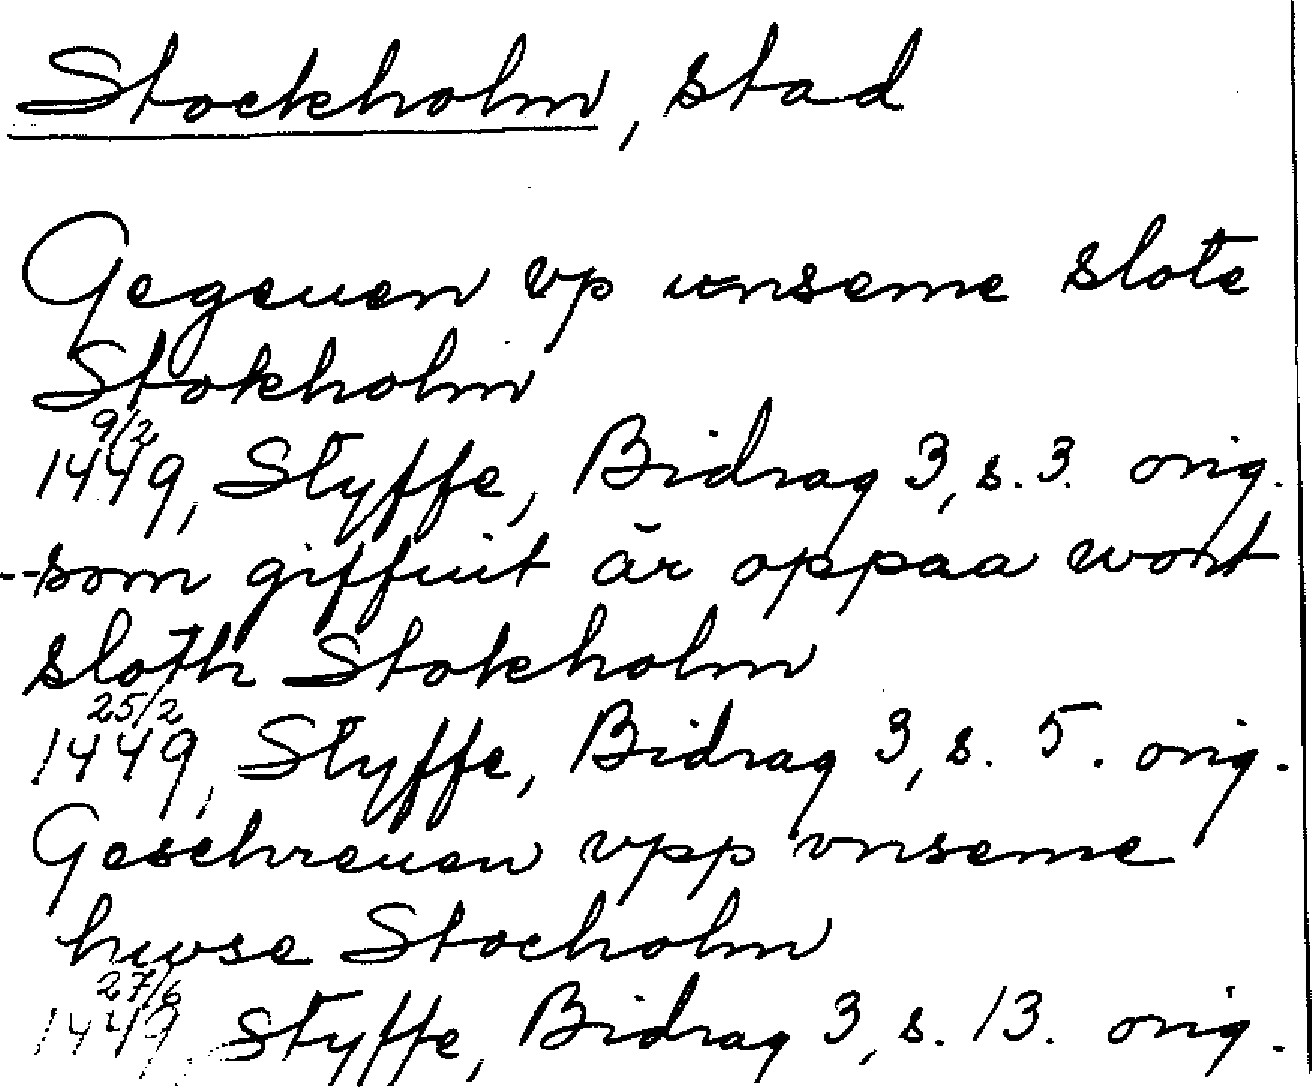 Stockholm, stad
Gegeuen vp unseme slote
Stokholm
9/2
1449, Styffe, Bidrag 3, s. 3. orig.
--som giffuit är oppaa wort
sloth Stokholm
25/2
1449, Styffe, Bidrag 3, s. 5. orig.
Geschreuen vpp vnseme
huse Stocholm
27/6
1449, Styffe, Bidrag 3, s. 13. orig.